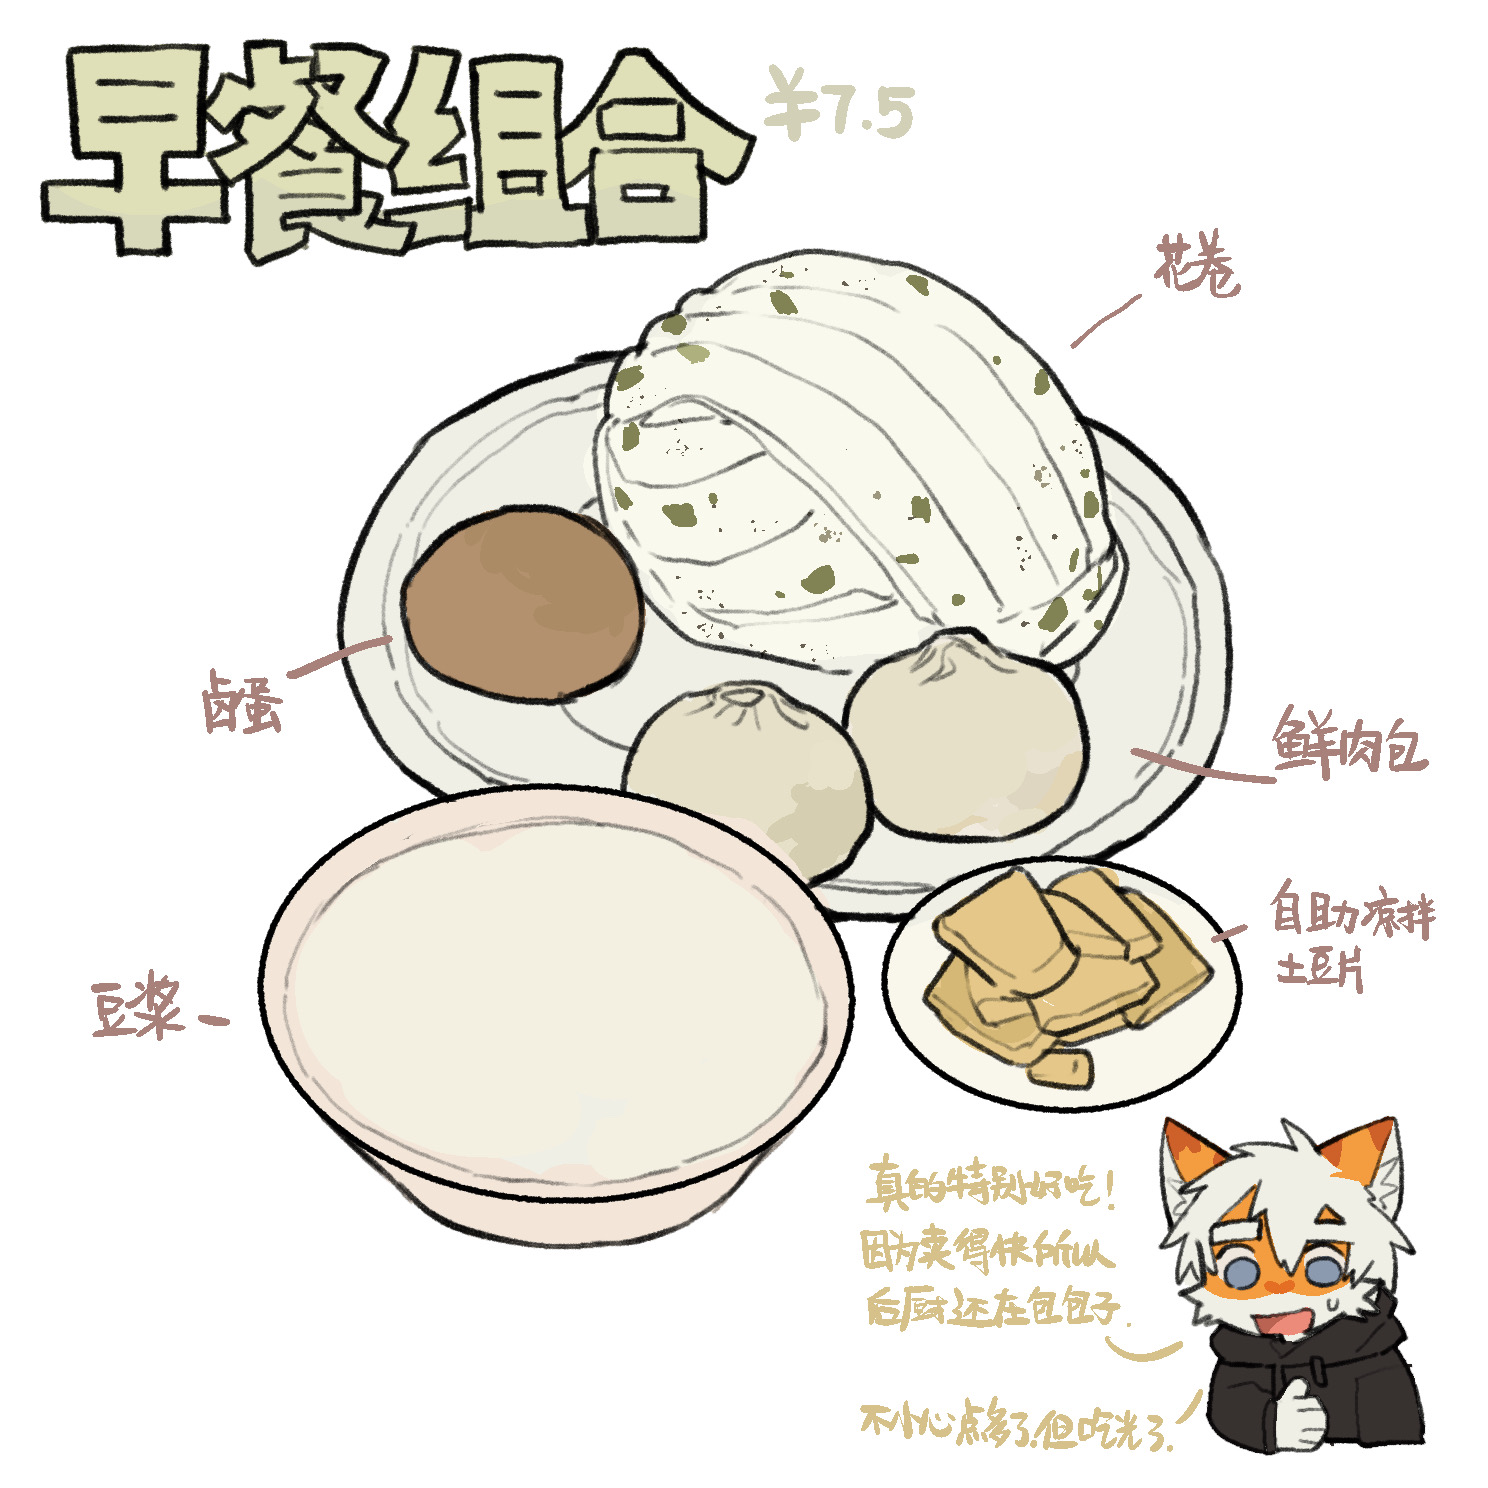 早餐组合
¥7.5
花卷
卤蛋
鲜肉包
自助凉拌
土豆片
豆浆
真的特别好吃！
因为卖得快所以
后厨还在包包子.
不小心点多了.但吃光了.